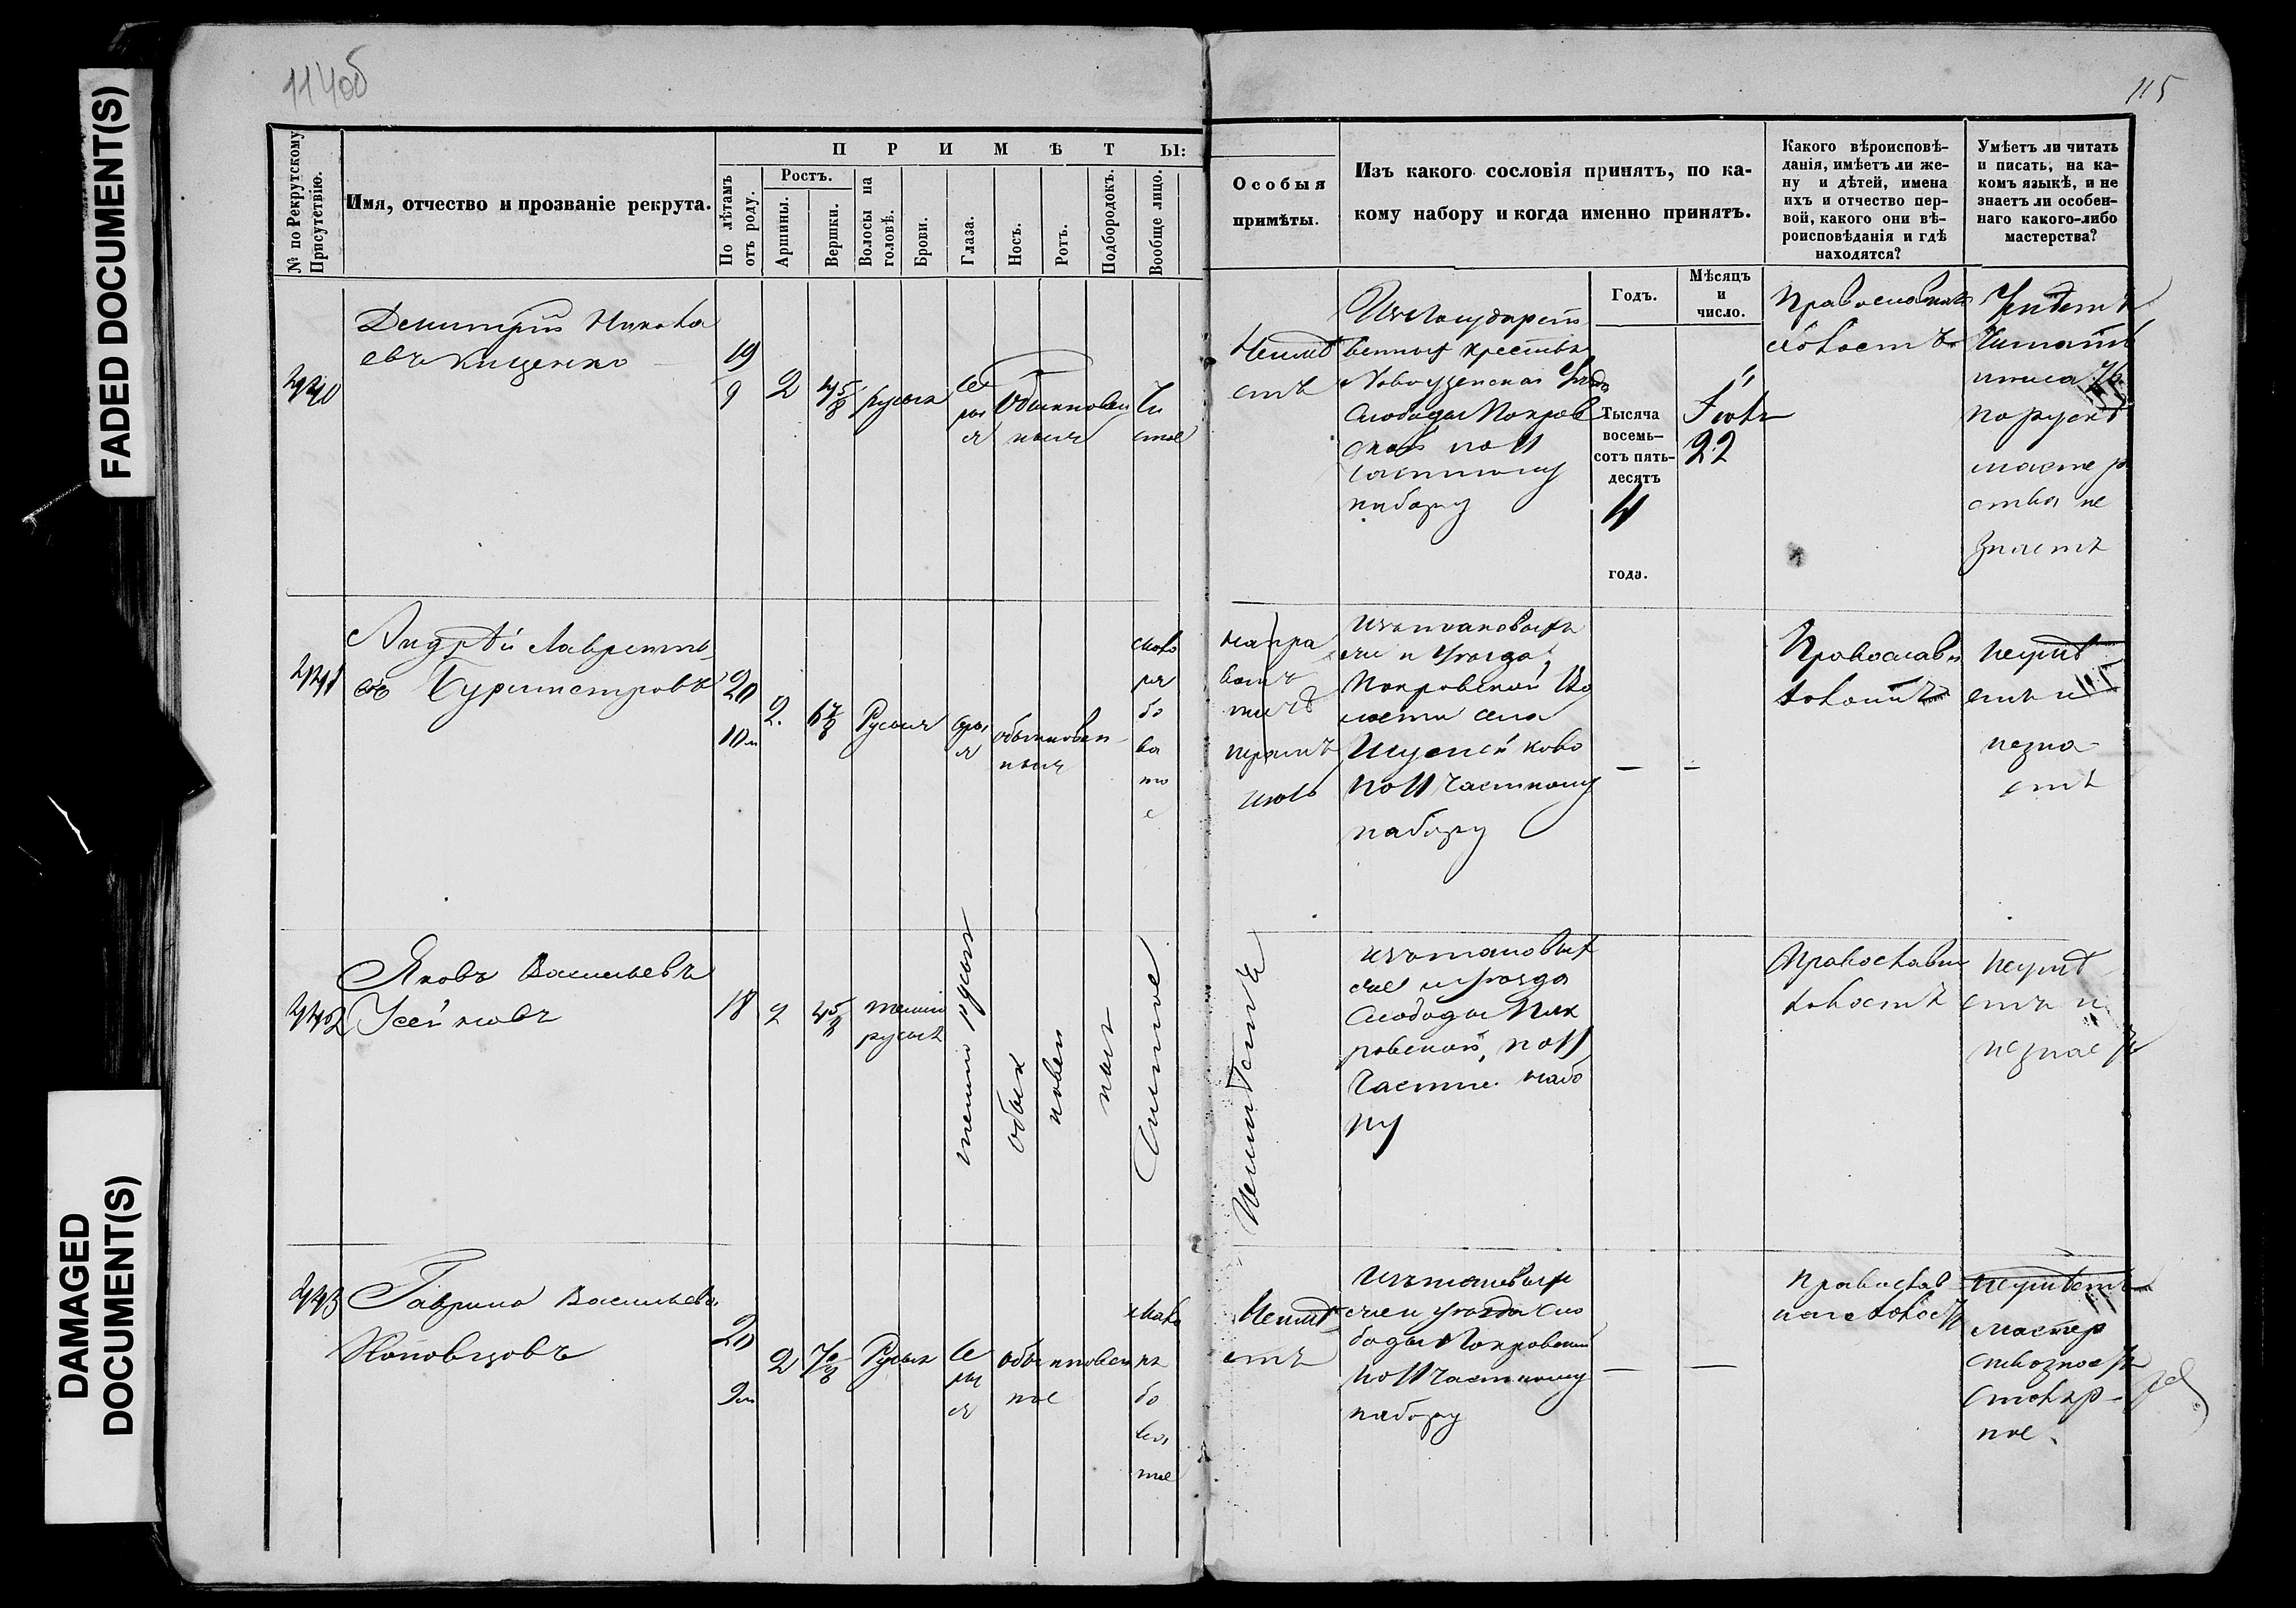 114об
115
FADED DOCUMENT(S)
DAMAGED
DOCUMENT(S)
№ по Рекрутскому
Присутствію.
Имя, отчество и прозваніе рекрута.
П Р И М Ѣ Т Ы:
По лѣтамъ
отъ роду.
Ростъ.
Аршины.
Вершки.
Волосы на
головѣ.
Брови.
Глаза.
Носъ.
Ротъ.
Подбородокъ.
Вообще лицо.
Особыя
примѣты.
Изъ какого сословія принятъ, по ка-
кому набору и когда именно принятъ.
Годъ.
Мѣсяцъ
и
число.
Какого вѣроисповѣ-
данія, имѣетъ ли же-
ну и дѣтей, имена
ихъ и отчество пер-
вой, какого они вѣ-
роисповѣданія и гдѣ
находятся?
Умѣетъ ли читать
и писать, на ка-
комъ языкѣ, и не
знаетъ ли особен-
наго какого-либо
мастерства?
440
Димитрій Никола
евъ Кищенко
19
9
2
4 5/8
русыя
се
рыя
обыкновен
ныя
чи
стое
Неимѣ
етъ
Изъ Государст
венныхъ крестья
Новоузенскаго Уѣзда
Слободы Покров
ской по 11
частному
набору
Тысяча
восемь-
сотъ пять-
десятъ
4
года.
22
Православнаго
холостъ
Умѣетъ
Читать
писать
по руски
мастер
ства не
знаетъ
441
Андрей Лавренть
евъ Бурмистровъ
20
10м
2.
6 7/8
Русыя
сѣры
я
обыкновен
ныя
бо
ва
то
е
на пра
шрамъ
изъ таковыхъ
же и уѣзда
Покровской Во
лости села
по 11 частному
набору
Православн
холостъ
неумѣ
етъ и
незна
етъ
442
Яковъ Васильевъ
18
2
4 5/8
темно
русыя
темно русыя
обык
новен
ныя
Чистое
Неимѣетъ
изъ таковыхъ
же и уѣзда
Слободы Пок
ровской, по 11
частно набо
ру
Православн
холостъ
неумѣ
етъ и
незнаетъ
443
Гаврило Васильевъ
Коповцовъ
20
9м
2
Русыя
се
рыя
обыкновен
ное
бо
ва
тое
Неимѣ
етъ
Изъ таковыхъ
же и уѣзда Сло
боды Покровской
по 11 частному
набору
Православ
наго холостъ
неумѣетъ
мастер
ство знаетъ
столяр-
ное.